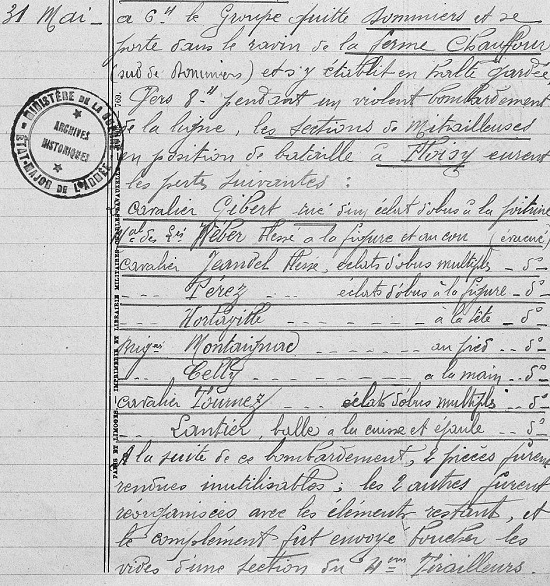 31 Mai - a 6h le Groupe quitte Dommiers et se
porte dans le ravin de la ferme Chauffour
(sud de Dommiers) et s'y établit en halte gardée
Vers 8h pendant un violent bombardement
de la ligne, les sections de Mitrailleuses
en position de bataille à Ploisy eurent
les pertes suivantes :
Cavalier Gibert tué d'un éclat d'obus à la poitrine
Mal des Lis Weber blessé a la figure et au cou (évacué)
Cavalier Jeandel blessé, éclats d'obus multiples - do
- - - Pérez - - - éclats d'obus à la figure - do
- - - - - - - - - a la tête - do
Brigr Montaignac - - - - - - - au pied - do
- - - - - - - - - a la main - do
Cavalier Fournez éclats d'obus multiples do
- - - Lantier, balle a la cuisse et épaule - do
A la suite de ce bombardement, 2 pièces furent
rendues inutilisables ; les 2 autres furent
réorganisées avec les éléments restant, et
le complément fut envoyé boucher les
vides d'une section du 4eme Tirailleurs.
MINISTÈRE DE LA GUERRE
ARCHIVES
HISTORIQUES
ÉTAT-MAJOR DE L'ARMÉE
PARIS ET LIMOGES. IMPRIMERIE ET LIBRAIRIE MILITAIRES CHARLES-LAVAUZELLE